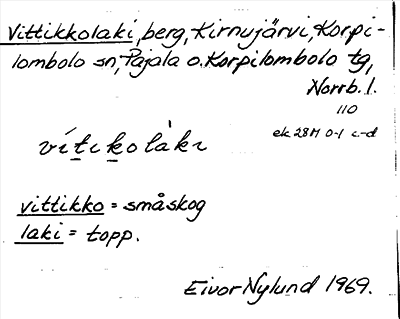 Vittikkolaki, berg, Kirnujärvi, Korpi-
lombolo sn, Pajala o. Korpilombolo tg,
Norrb. l.
110
ek 28M 0-1 c-d
vítikolàki
vittikko = småskog
laki = topp.
Eivor Nylund 1969.